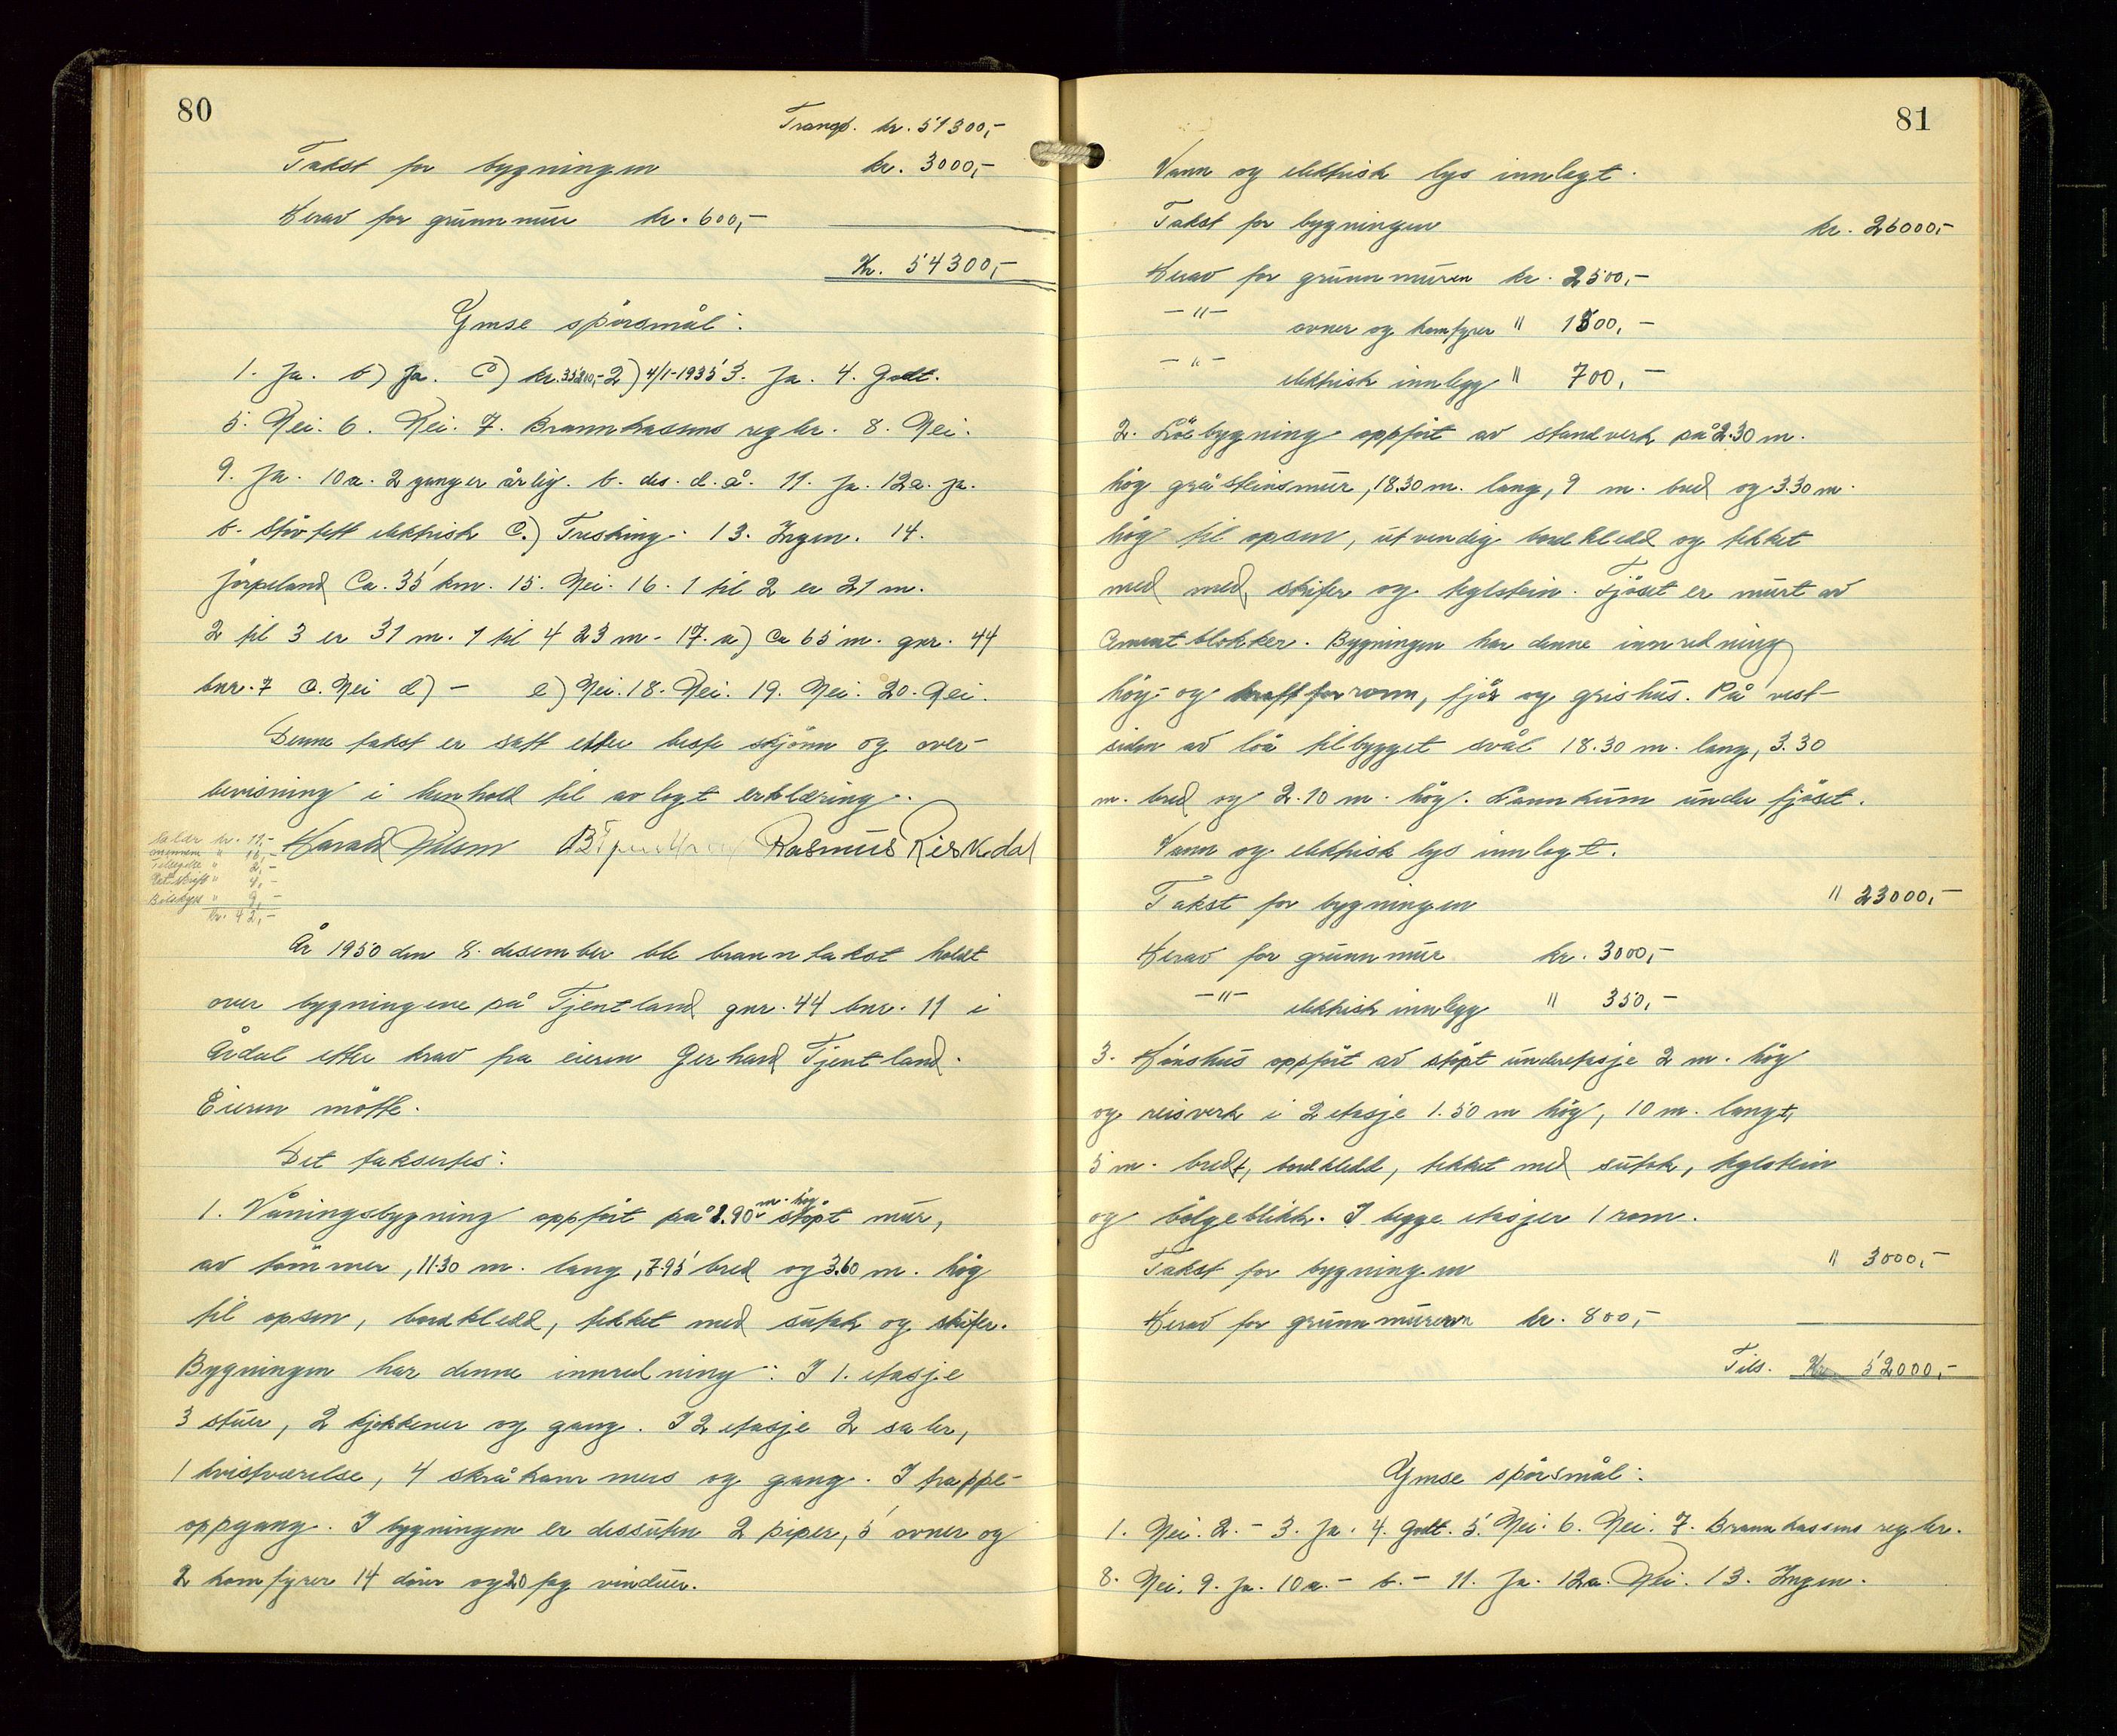 80
Transp. kr. 51300,-
Takst for bygningen kr. 3000,-
Herav for grunnmur kr. 600,-
Kr. 54300,-
Ymse spörsmål:
1. Ja. b) Ja. C) kr. 35200,- 2) 4/1-1935 3. Ja. 4. Godt.
5. Nei. 6. Nei. 7. Brannkassens regler. 8. Nei.
9. Ja. 10a. 2 ganger årlig. b. des. d. å. 11. Ja. 12a. Ja.
b. Støvtett elektrisk C.) Tresking. 13. Ingen. 14.
Jörpeland Ca. 35 km. 15. Nei. 16. 1 til 2 er 21 m.
2 til 3 er 31 m. 1 til 4 23 m. 17. a) Ca 65 m. gnr. 44
bnr. 7 c. Nei d) - e) Nei. 18. Nei. 19. Nei. 20. Nei.
Denne takst er satt etter beste skjönn og over-
bevisning i henhold til avlagt erklæring.
Harald Nilsen Rasmus Riskedal
2,-
4,-
9,-
Kr. 42,-
År 1950 den 8. desember ble branntakst holdt
over bygningene på Tjentland gnr. 44 bnr. 11 i
Årdal etter krav fra eieren Gerhard Tjentland.
Eieren mötte.
Det takseres:
1. Våningsbygning oppfört på 1.90 m. hög stöpt mur,
av tömmer, 11.30 m. lang, 7.95 bred og 3.60 m. hög
til opsen, bordkledd, tekket med sutak og skifer.
Bygningen har denne innredning: I 1. etasje
3 stuer, 2 kjøkkener og gang. I 2 etasje 2 saler,
1 kvistværelse, 4 skråkammers og gang. I trappe-
oppgang. I bygningen er dessuten 2 piper, 5 ovner og
2 komfyrer 14 dörer og 20 fag vinduer.
81
Vann og elektrisk lys innlagt.
Takst for bygningen kr. 26000,-
Herav for grunnmuren kr. 2500,-
-"- ovner og komfyrer " 1500,-
-"- elektrisk innlegg " 700,-
2. Löebygning oppfört av standverk på 2.30 m.
hög gråsteinsmur, 18.30 m. lang, 9 m. bred og 3.30 m.
hög til opsen, utvendig bordkledd og tekket
med med, skifer og teglstein. Fjöset er murt av
Cementblokker. Bygningen har denne innredning
höy- og kraftforrom, fjös og grishus. På vest-
siden av löa tilbygget svål 18.30 m. lang, 3.30
m. bred og 2.10 m. hög. Lannkum under fjöset.
Vann og elektrisk lys innlagt.
Takst for bygningen " 23000,-
Herav for grunnmur kr. 3000,-
-"- elektrisk innlegg " 350,-
3. Hönshus oppfört av stöpt underetasje 2 m. hög
og reisverk i 2 etasje 1.50 m hög, 10 m. langt,
5 m. bredt, bordkledd, tekket med sutak, teglstein
og bölgeblikk. I begge etasjer 1 rom.
Takst for bygningen " 3000,-
Herav for grunnmuren kr. 800,-
Tils. Kr. 52000,-
Ymse spörsmål:
1. Nei. 2. - 3. Ja. 4. Godt. 5. Nei. 6. Nei. 7. Brannkassens regler.
8. Nei. 9. Ja. 10a. - b. - 11. Ja. 12a. Nei. 13. Ingen.